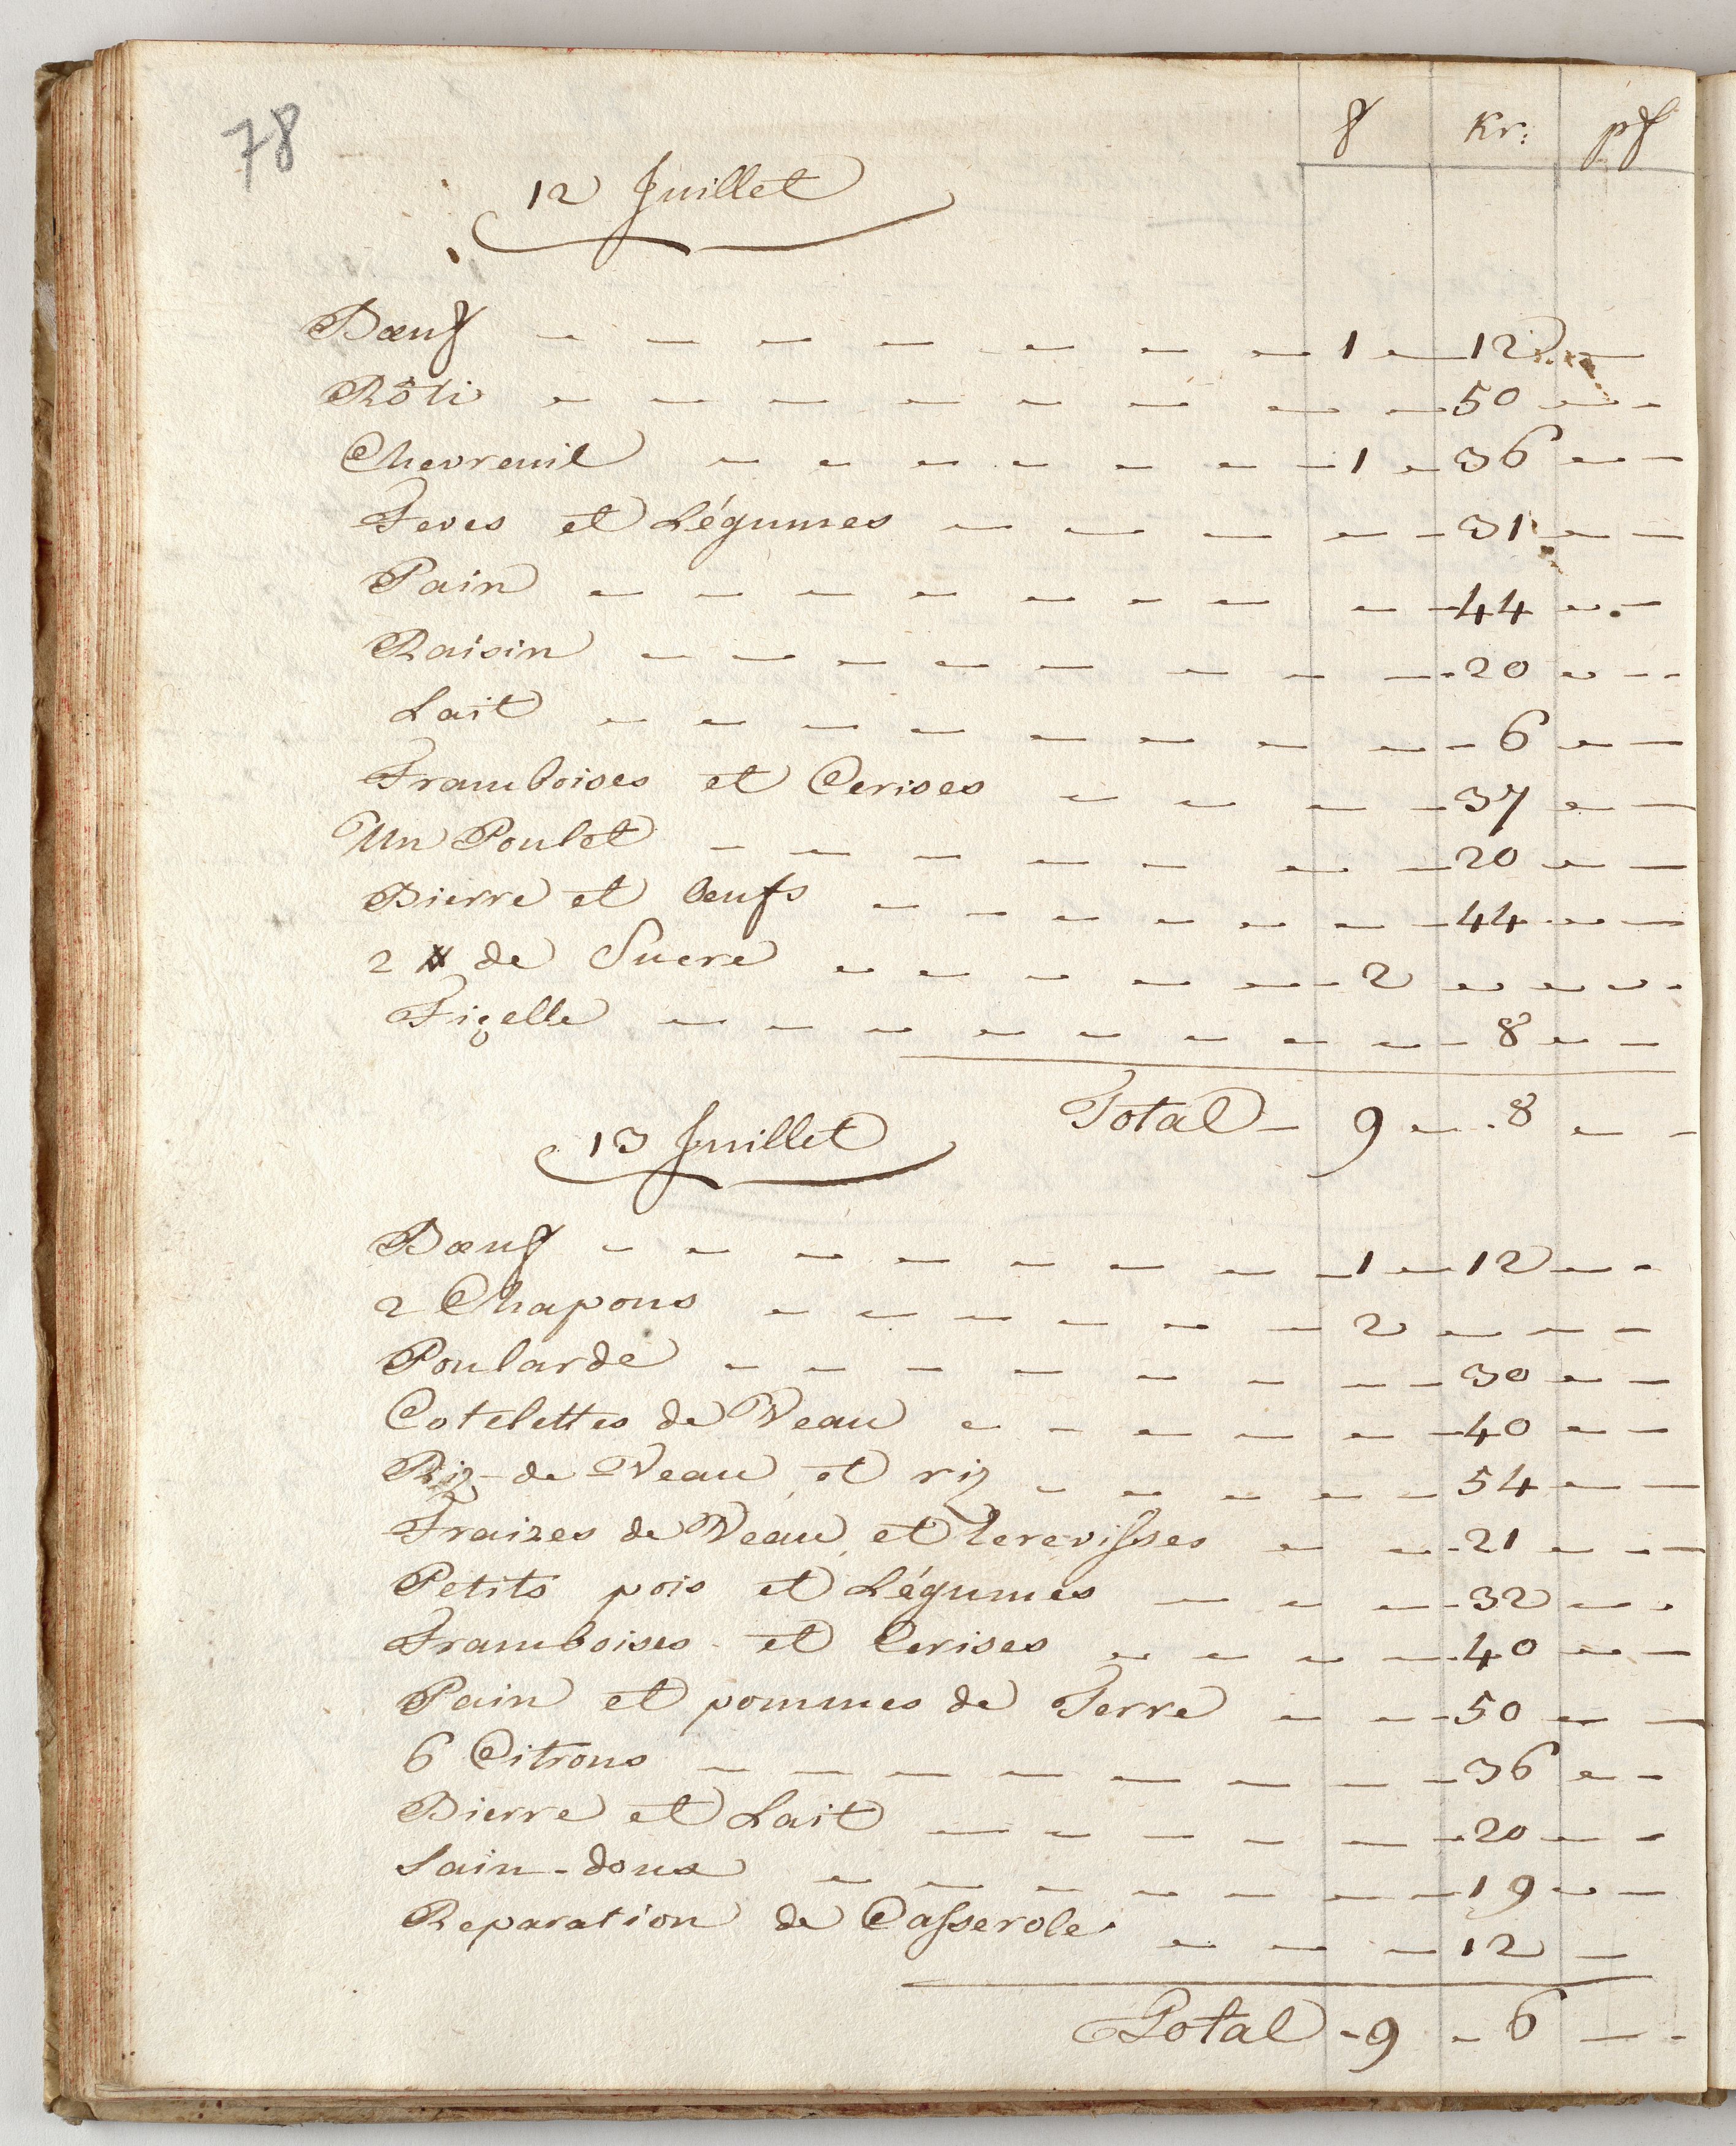 78
f Kr: pf
12 Juillet
Bœuf 1 12
Rôti 50
Chevreuil 1 36
Feves et Légumes 31
Pain 44
Raisin 20
Lait 6
Framboises et Cerises 37
Un Poulet 20
Bierre et œufs 44
2 ℔ de Sucre 2
Fiçelle 8
Total 9 8
13 Juillet
Bœuf 1 12
2 Chapons 2
Poularde 30
Cotelettes de Veau 40
Riz-de Veau et riz 54
Fraizes de Veau et Ecrevisses 21
Petits pois et Légumes 32
Framboises et Cerises 40
Pain et pommes de Terre 50
6 Citrons 36
Bierre et Lait 20
Sain-doux 19
Reparation de Casserole 12
Total 9 6